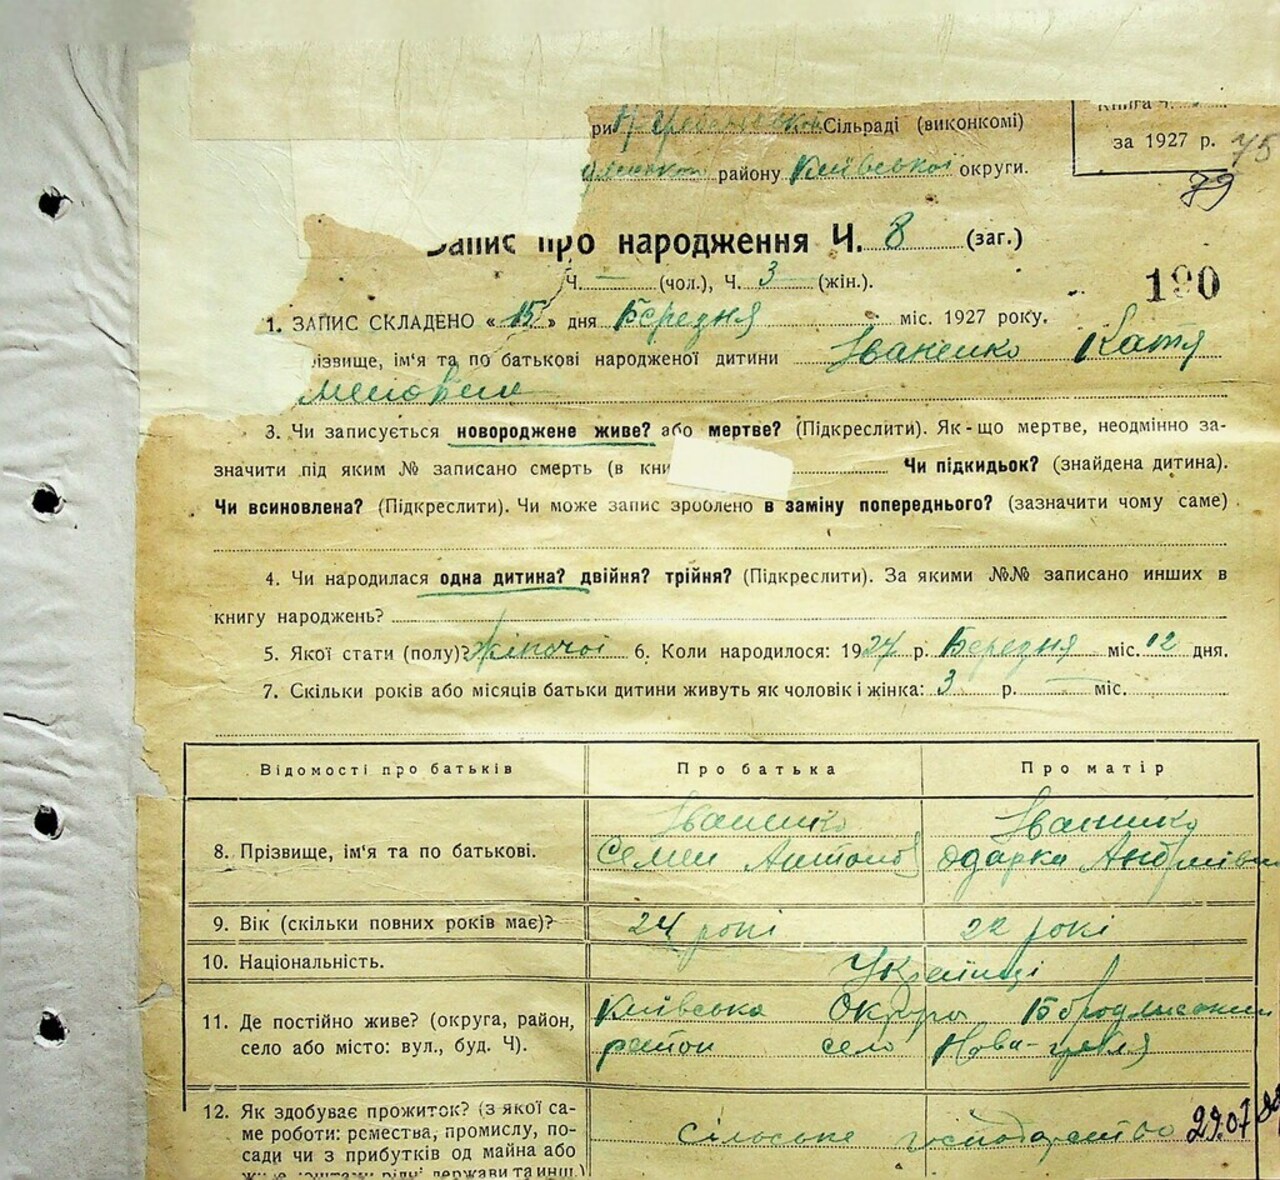 Книга Ч.
ри Сільраді (виконкомі)
за 1927 р. 75
району Київської округи.
79
Запис про народження Ч. 8 (заг.)
Ч. — (чол.), Ч. 3 (жін.).
190
1. ЗАПИС СКЛАДЕНО «15» дня Березня міс. 1927 року.
різвище, ім'я та по батькові народженої дитини Іваненко Катя
3. Чи записується новороджене живе? або мертве? (Підкреслити). Як-що мертве, неодмінно за-
значити під яким № записано смерть (в кни Чи підкидьок? (знайдена дитина).
Чи всиновлена? (Підкреслити). Чи може запис зроблено в заміну попереднього? (зазначити чому саме)
4. Чи народилася одна дитина? двійня? трійня? (Підкреслити). За якими №№ записано инших в
книгу народжень?
5. Якої стати (полу)? жіночої 6. Коли народилося: 1927 р. Березня міс. 12 дня.
7. Скільки років або місяців батьки дитини живуть як чоловік і жінка: 3 р. — міс.
Відомості про батьків Про батька Про матір
8. Прізвище, ім'я та по батькові. Іваненко Іваненко
Семен Антонов Одарка
9. Вік (скільки повних років має)? 24 рокі 22 рокі
10. Національність. Українці
11. Де постійно живе? (округа, район, Київська Округа
село або місто: вул., буд. Ч). район село Нова-
12. Як здобуває прожиток? (з якої са-
ме роботи: ремества, промислу, по- сільське господарство 29.07
сади чи з прибутків од майна або
держави та инш.)